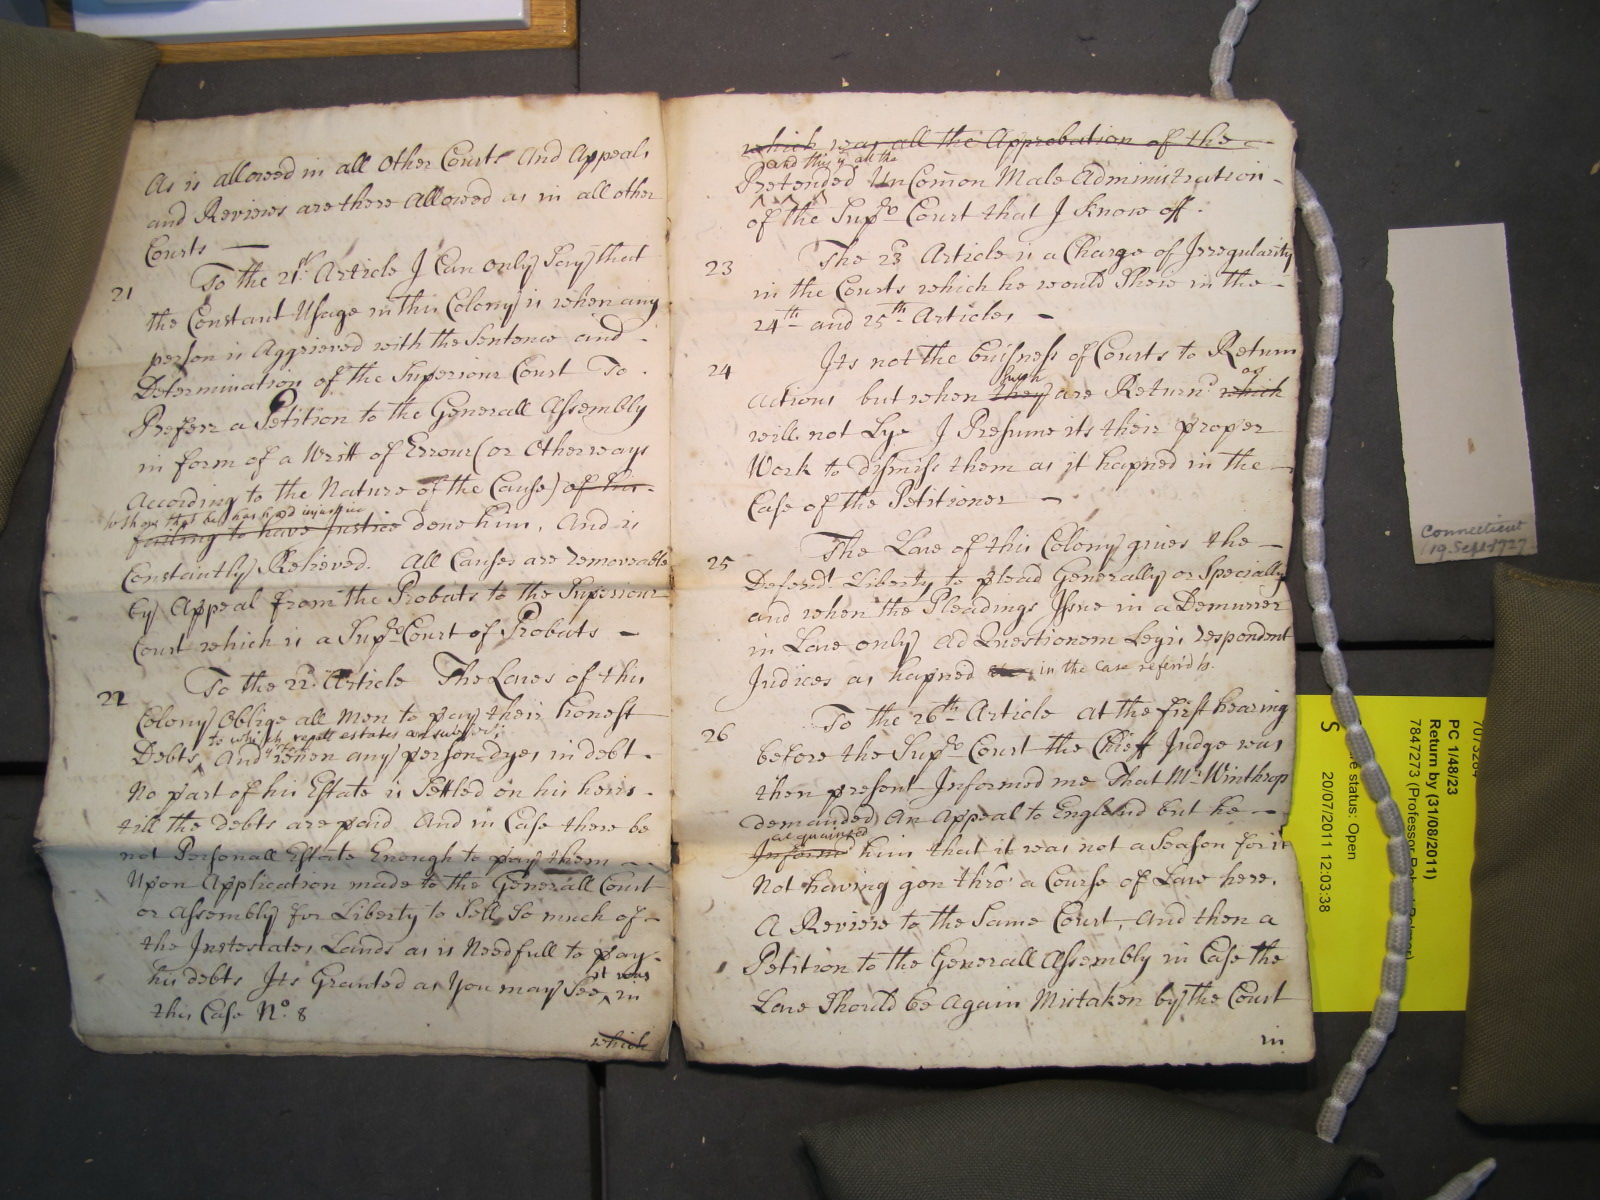 As is allowed in all Other Courts And Appeals
and Reviews are there Allowed as in all other
Courts —
21 To the 21st Article I Can only Say that
the Constant Usage in this Colony is when any
person is Aggrieved with the Sentence and -
Determination of the Superiour Court To .
Preferr a Petition to the Generall Assembly
in form of a Writt of Errour (or Otherways
According to the Nature of the Cause) of his -
to shew that he has had injustice
failing to have Justice done him, And is
Constantly Relieved. All Causes are removeable
by Appeal from the Probats to the Superiour
Court which is a Supr Court of Probats —
22 To the 22d Article The Laws of this
Colony Oblige all Men to pay their honest
to which reall estates are subject;
Debts, And when any person dyes in debt -
No part of his Estate is Settled on his heirs -
till the debts are paid And in Case there be
not Personall Estate Enough to pay them -
Upon Application made to the Generall Court
or Assembly for Liberty to Sell So much of -
the Instestates Lands as is Needfull to pay -
his debts Its Granted as You may See,
it was
in
this Case No. 8
which
which was all the Approbation of the —
and this is all the
Pretended UnComon Male Administration -
of the Supr Court that I know off.
23 The 23 Article is a Charge of Irregularity
in the Courts which he would Shew in the -
24th and 25th Articles —
24 Its not the buisness of Courts to Return
such
as
Actions but when they are Returnd which
will not Lye I Presume its their proper
Work to dismiss them as it hapned in the —
Case of the Petitioner —
25 The Law of this Colony gives the —
Defendt Liberty to plead Generally or Specially
and when the Pleadings Issue in a Demurrer
in Law only Ad Questionem Legis respondent
Judices as hapned in the case referrd to.
26 To the 26th Article At the first hearing
before the Supr Court the Chieff Judge was
then present Informed me That Mr Winthrop
demanded An Appeal to England but he —
acquainted
Informd him that it was not a Season for it
Not having gon thro' a Course of Law here,
A Review to the Same Court, And then a
Petition to the Generall Assembly in Case the
Law Should be Again Mistaken by the Court
in
Connecticut
19. Sept 1727
PC 1/48/23
Return by (31/08/2011)
7847273 (Professor
status: Open
20/07/2011 12:03:38
S